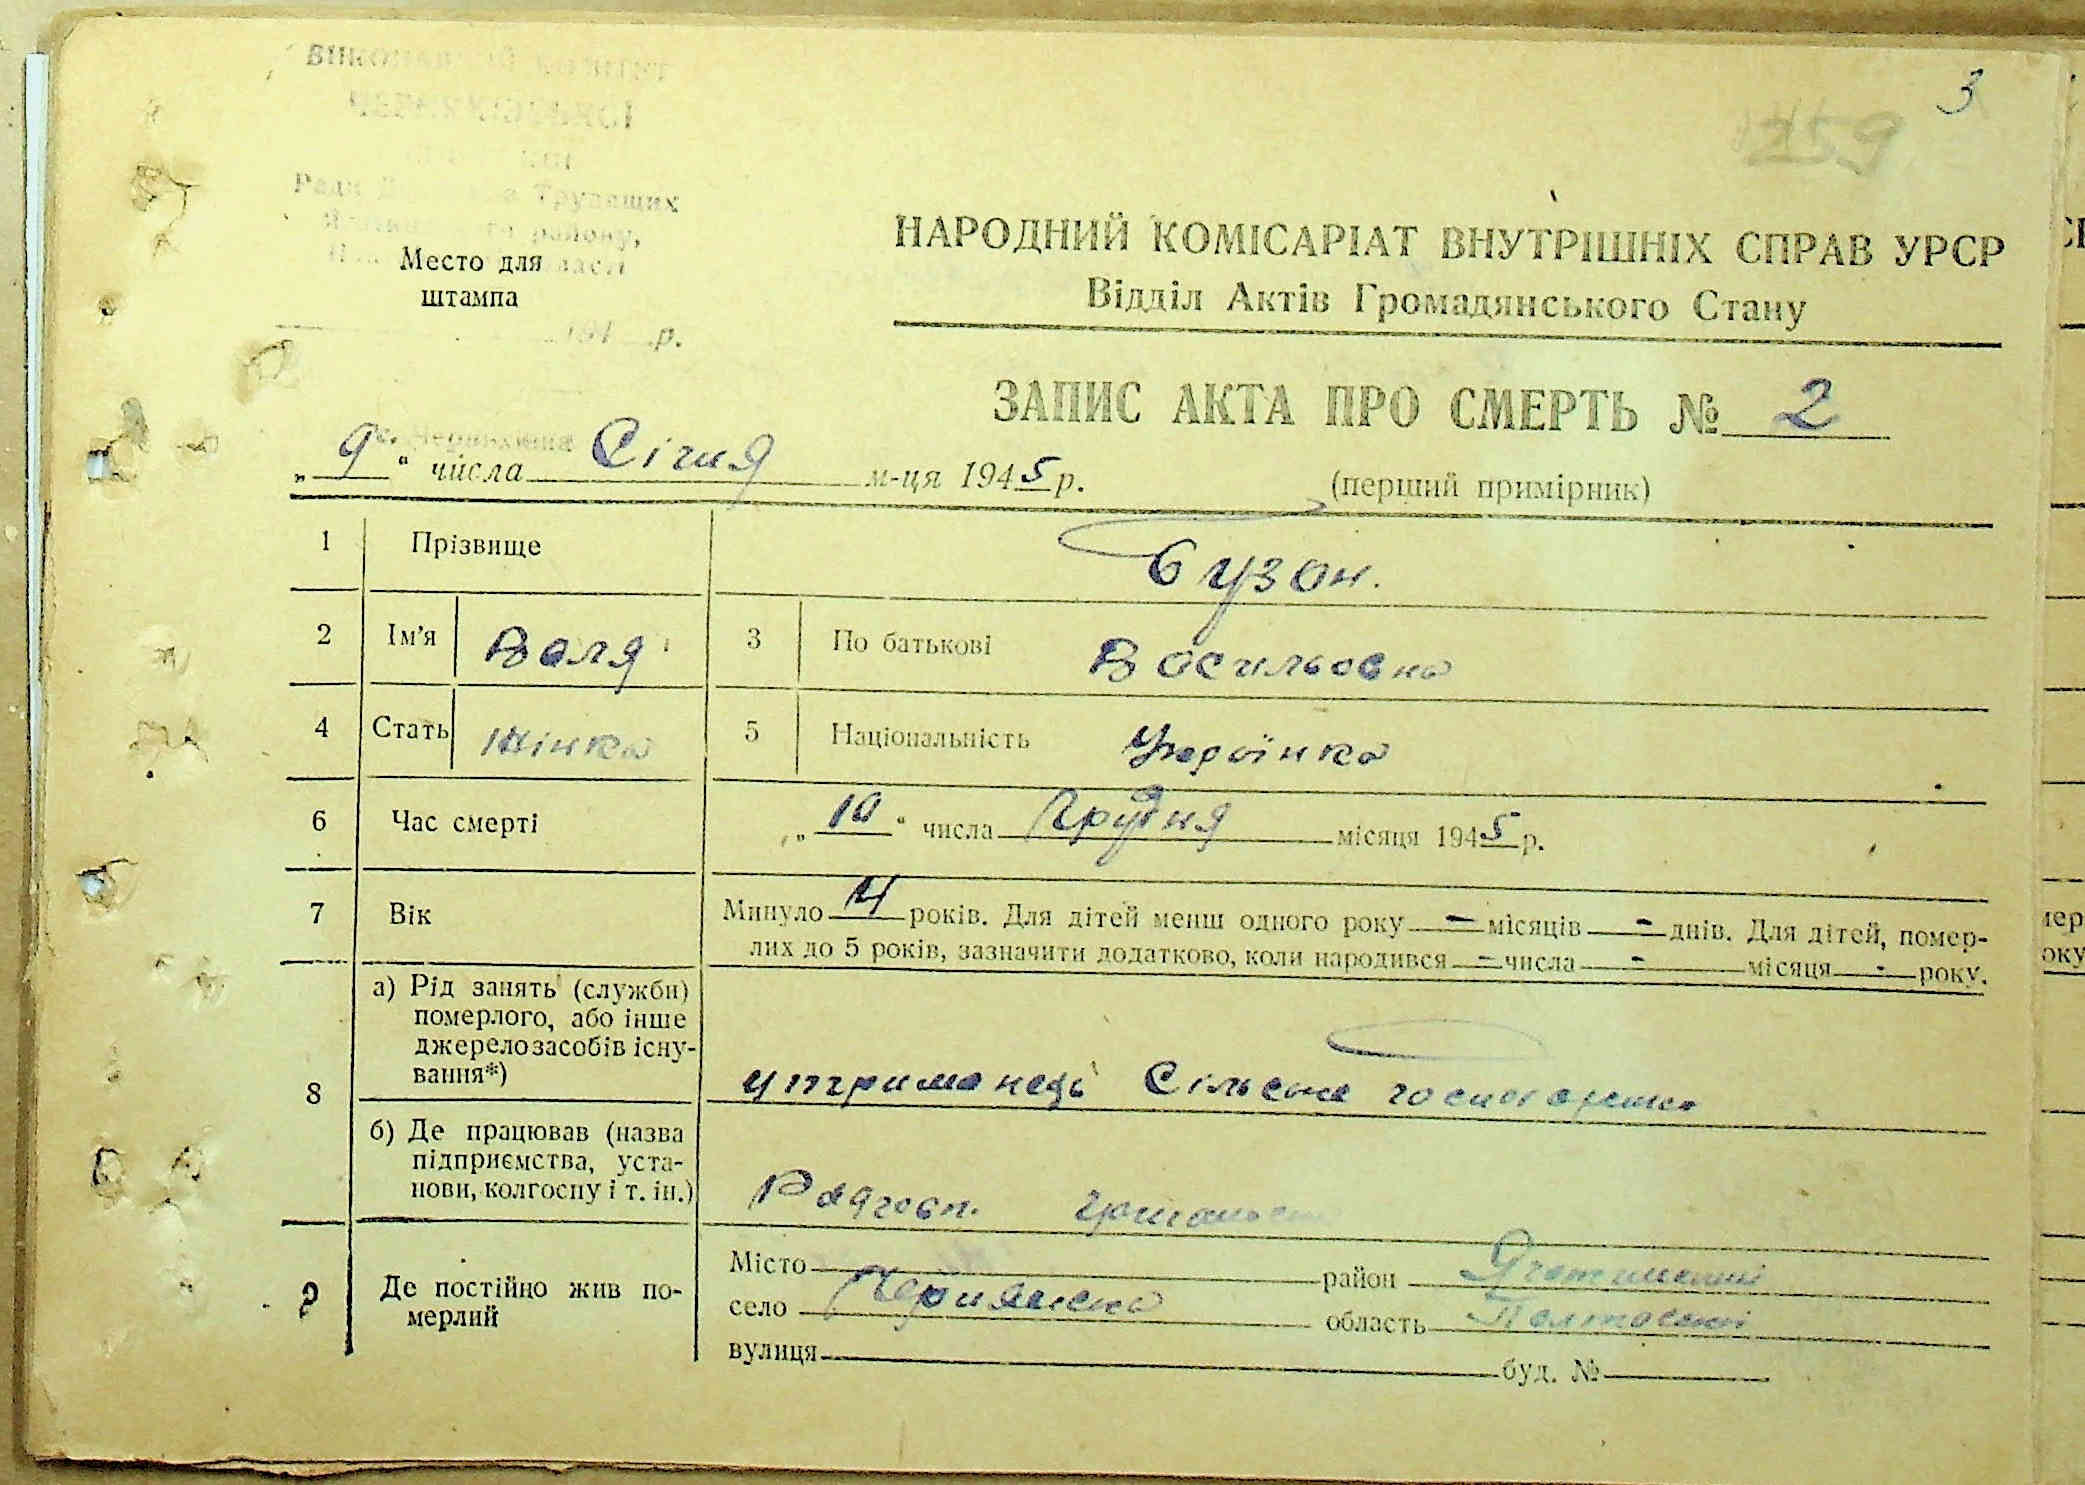 3
ВИКОНАВЧИЙ КОМІТЕТ
Ради Трудящих
району,
Место для
штампа
194 р.
НАРОДНИЙ КОМІСАРІАТ ВНУТРІШНІХ СПРАВ УРСР
Відділ Актів Громадянського Стану
ЗАПИС АКТА ПРО СМЕРТЬ № 2
„9“ числа Січня м-ця 1945 р.
(перший примірник)
1 Прізвище Бузон.
2 Ім’я Валя 3 По батькові Васильовна
4 Стать жінка 5 Національність Українка
6 Час смерті „10“ числа Грудня місяця 1945 р.
7 Вік Минуло 14 років. Для дітей менш одного року - місяців - днів. Для дітей, помер-
лих до 5 років, зазначити додатково, коли народився - числа - місяця - року.
8 а) Рід занять (служби)
померлого, або інше
джерело засобів існу-
вання*)
утриманець Сільське господарство
б) Де працював (назва
підприємства, уста-
нови, колгоспу і т. ін.)
Радгосп.
9 Де постійно жив по-
мерлий
Місто район Яготинський
село Черняхівка область Полтавській
вулиця буд. №